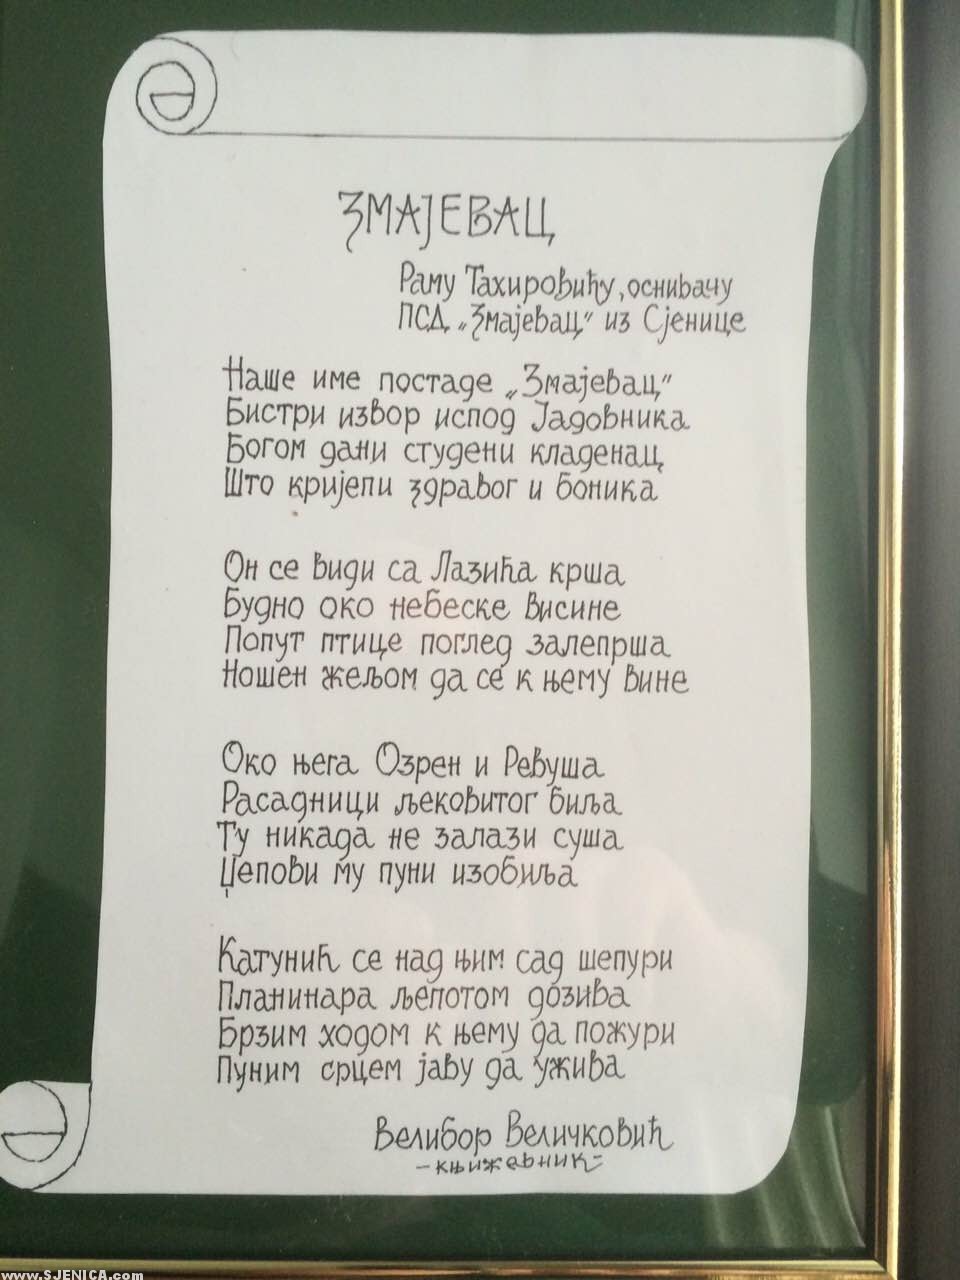 ЗМАЈЕВАЦ
Раму Тахировићу, оснивачу
ПСД „Змајевац“ из Сјенице
Наше име постаде „Змајевац“
Бистри извор испод Јадовника
Богом дани студени кладенац
Што кријепи здравог и боника
Он се види са Лазића крша
Будно око небеске висине
Попут птице поглед залепрша
Ношен жељом да се к њему вине
Око њега Озрен и Ревуша
Расадници љековитог биља
Ту никада не залази суша
Џепови му пуни изобиља
Катунић се над њим сад шепури
Планинара љепотом дозива
Брзим ходом к њему да пожури
Пуним срцем јаву да ужива
Велибор Величковић
-књижевник-
www.SJENICA.com